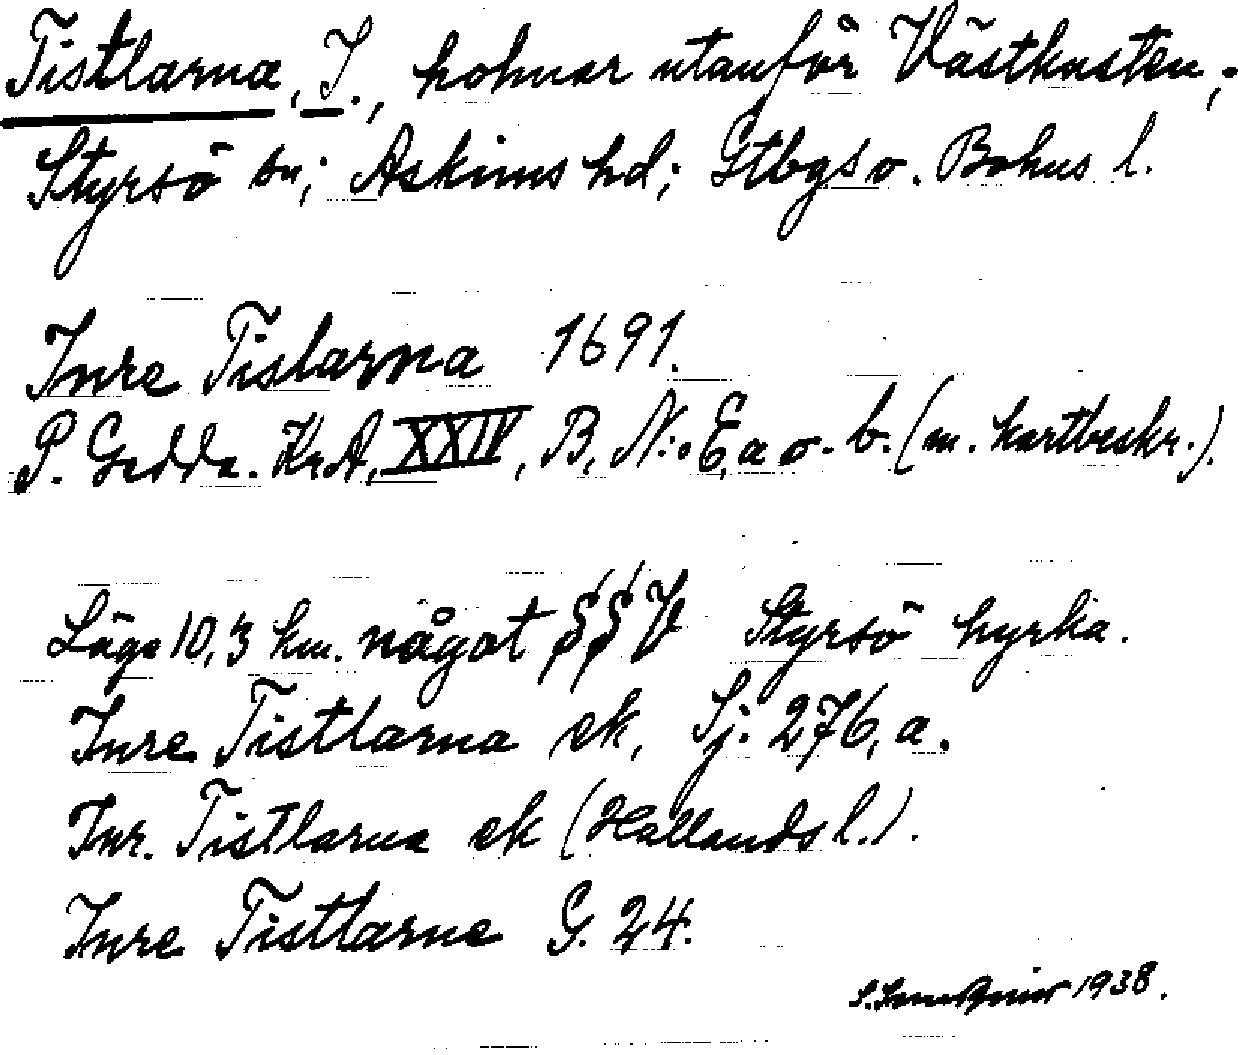 Tistlarna, I., holmar utanför Västkusten,
Styrsö sn; Askims hd; Gtbgs o. Bohus l.
Inre Tislarna 1691.
P. Gedda. KrA, XXIV, B, N:o 6, a o. b. (m. kartbeskr.).
Läge 10,3 km. något SSV Styrsö kyrka.
Inre Tistlarna ek, Sj. 276, a.
Inr. Tistlarna ek (Hallands l.).
Inre Tistlarne G. 24.
1938.